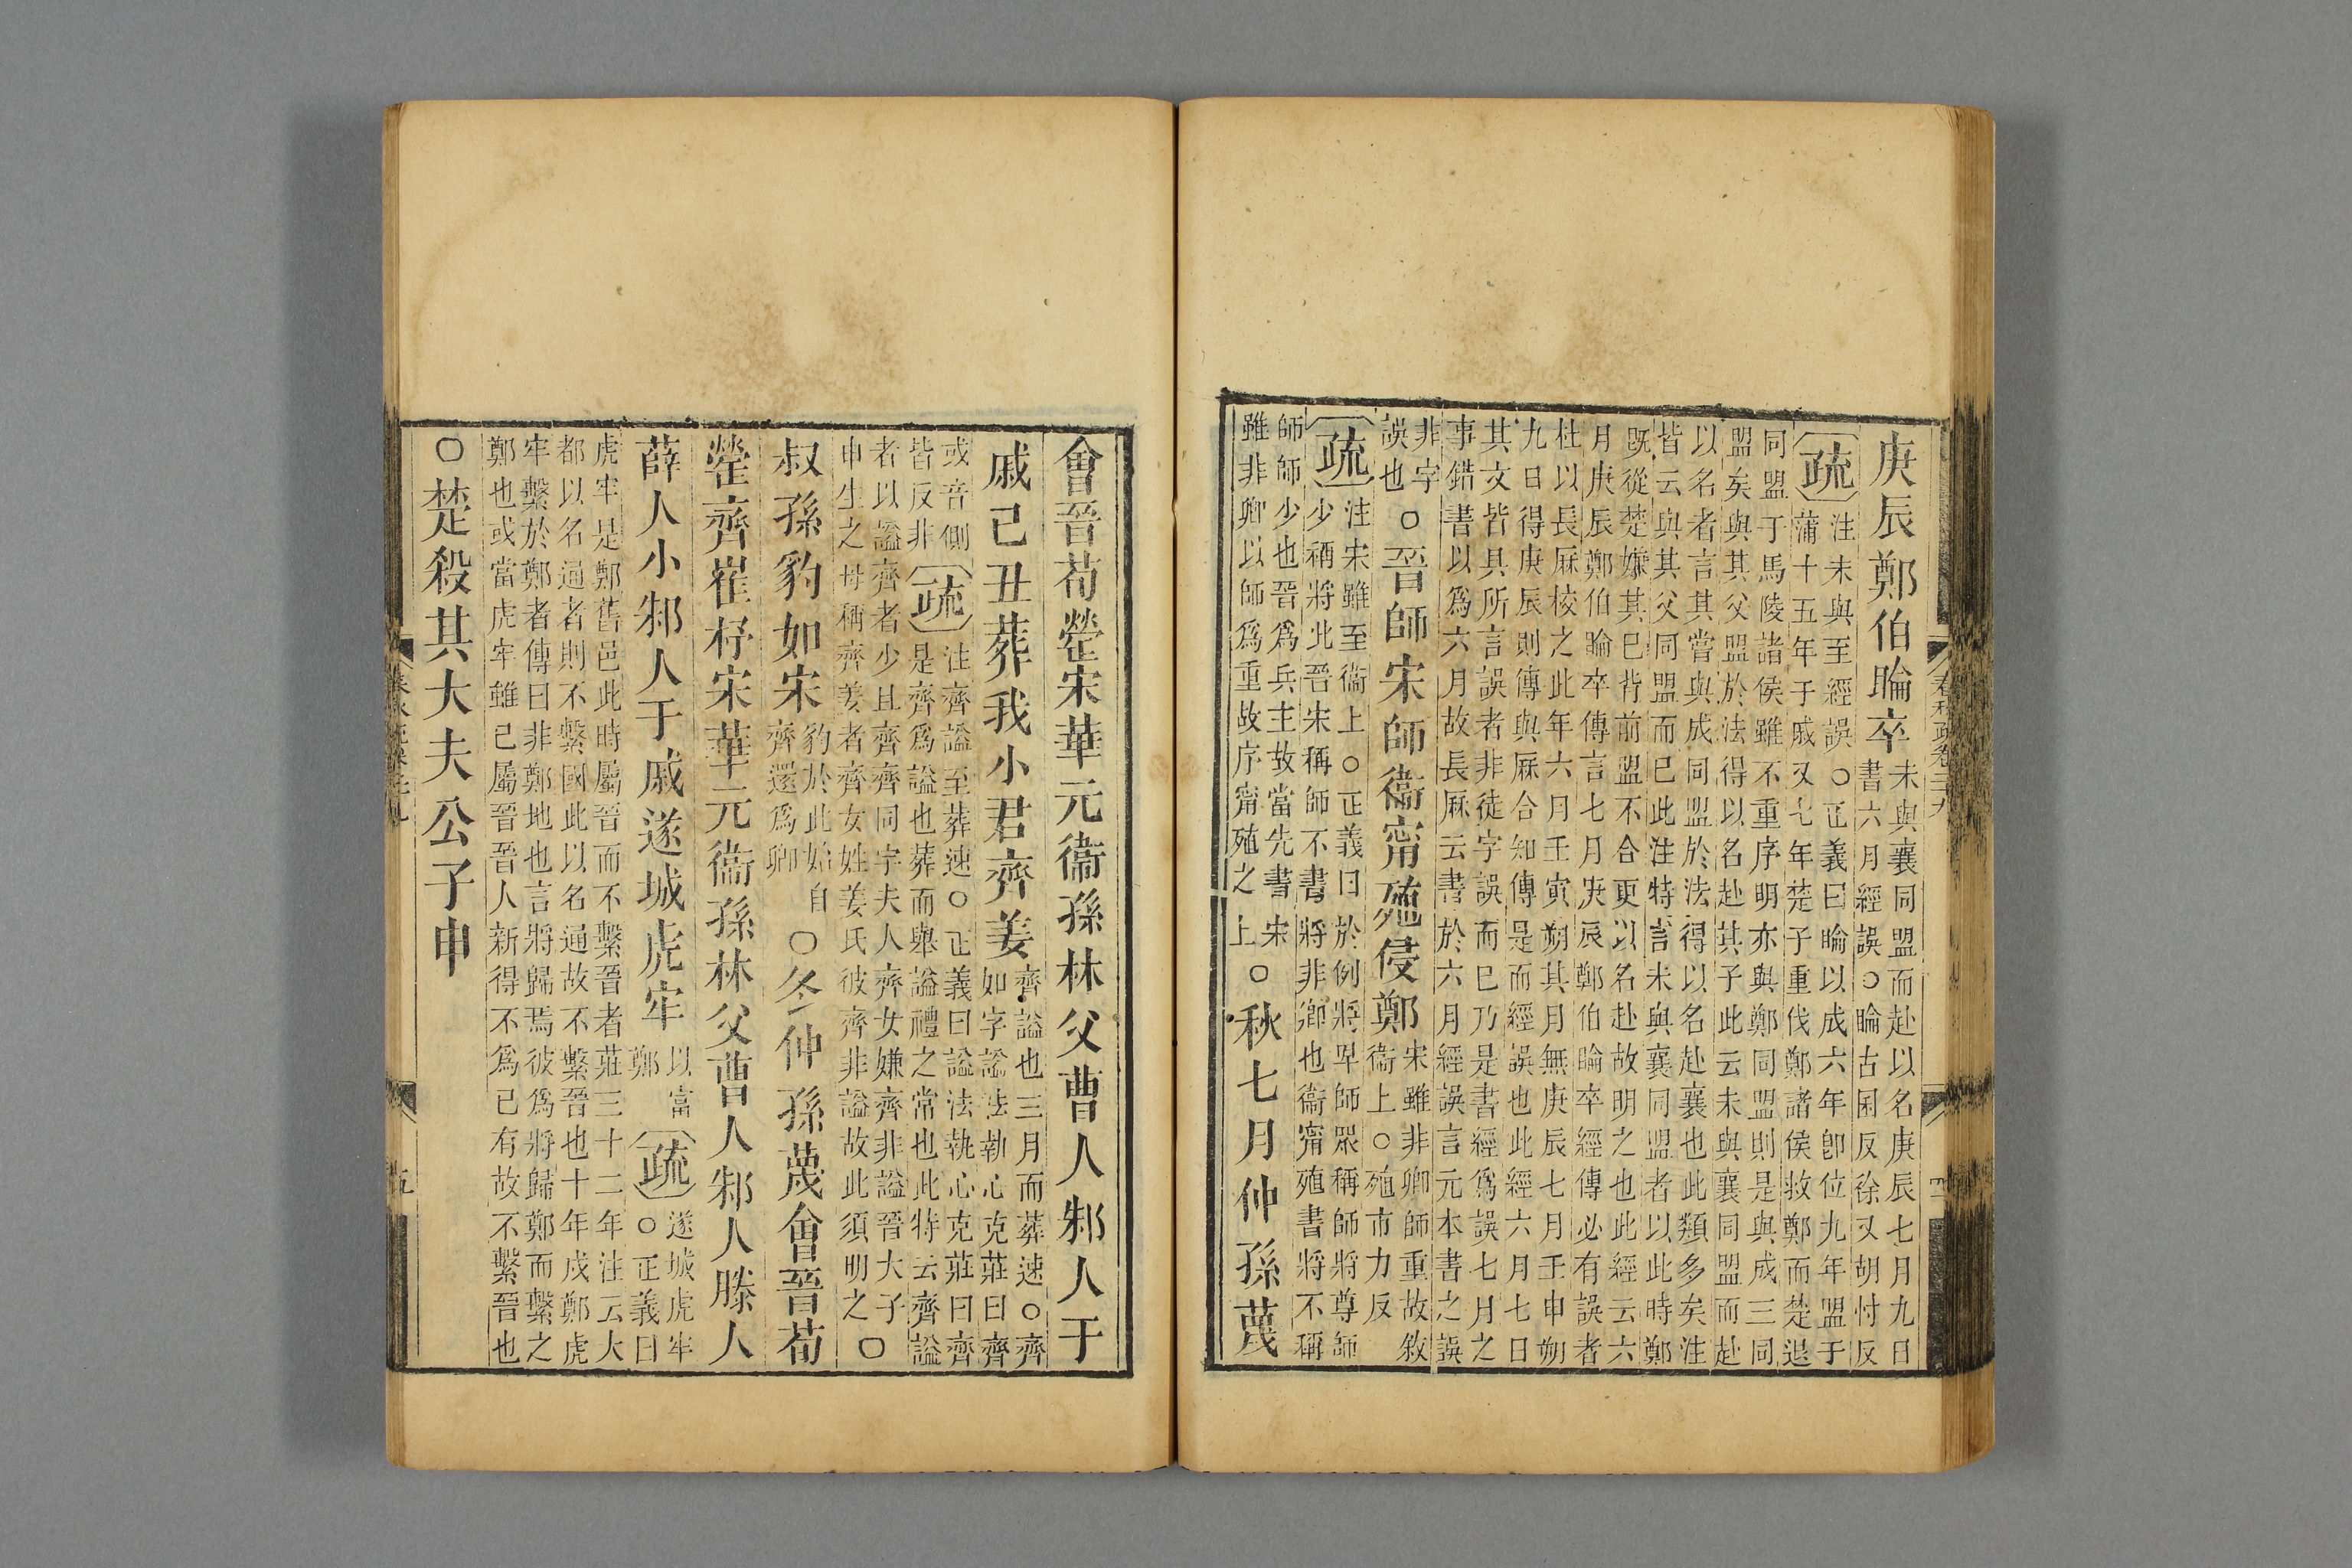 庚辰鄭伯睔卒未與襄同盟而赴以名庚辰七月九日
書六月經誤○睔古囷反徐又胡忖反
疏注未與至經誤○正義曰睔以成六年卽位九年盟于
蒲十五年于戚又七年楚子重伐鄭諸侯救鄭而楚退
同盟于馬陵諸侯雖不重序明亦與鄭同盟則是與成三同
盟矣與其父盟於法得以名赴其子此云未與襄同盟而赴
以名者言其嘗與成同盟於法得以名赴襄也此類多矣注
皆云與其父同盟而已此注特言未與襄同盟者以此時鄭
旣從楚嫌其巳背前盟不合更以名赴故明之也此經云六
月庚辰鄭伯睔卒傳言七月庚辰鄭伯睔卒經傳必有誤者
杜以長厤校之此年六月壬寅朔其月無庚辰七月壬申朔
九日得庚辰則傳與厤合知傳是而經誤也此經六月七日
其文皆具所言誤者非徒字誤而巳乃是書經爲誤七月之
事錯書以爲六月故長厤云書於六月經誤言元本書之誤
非字
誤也○晉師宋師衞甯殖侵鄭宋雖非卿師重故敘
衞上○殖市力反
疏注宋雖至衞上○正義曰於例將卑師眾稱師將尊師
少稱將此晉宋稱師不書將非卿也衞甯殖書將不稱
師師少也晉爲兵主故當先書宋
雖非卿以師爲重故序甯殖之上○秋七月仲孫蔑
會晉荀罃宋華元衞孫林父曹人邾人于
戚己丑葬我小君齊姜齊謚也三月而葬速○齊
如字謚法執心克莊曰齊
或音側
皆反非疏注齊謚至葬速○正義曰謚法執心克莊曰齊
是齊爲謚也葬而舉謚禮之常也此特云齊謚
者以謚齊者少且齊同字夫人齊女嫌齊非謚晉大子
申生之母稱齊姜者齊女姓姜氏彼齊非謚故此須明之○
叔孫豹如宋豹於此始自
齊還爲卿○冬仲孫蔑會晉荀
罃齊崔杼宋華元衞孫林父曹人邾人滕人
薛人小邾人于戚遂城虎牢以富
鄭疏遂城虎牢
○正義曰
虎牢是鄭舊邑此時屬晉而不繫晉者莊三十二年注云大
都以名通者則不繫國此以名通故不繫晉也十年戍鄭虎
牢繫於鄭者傳曰非鄭地也言將歸焉彼爲將歸鄭而繫之
鄭也或當虎牢雖已屬晉晉人新得不爲已有故不繫晉也
○楚殺其大夫公子申
五